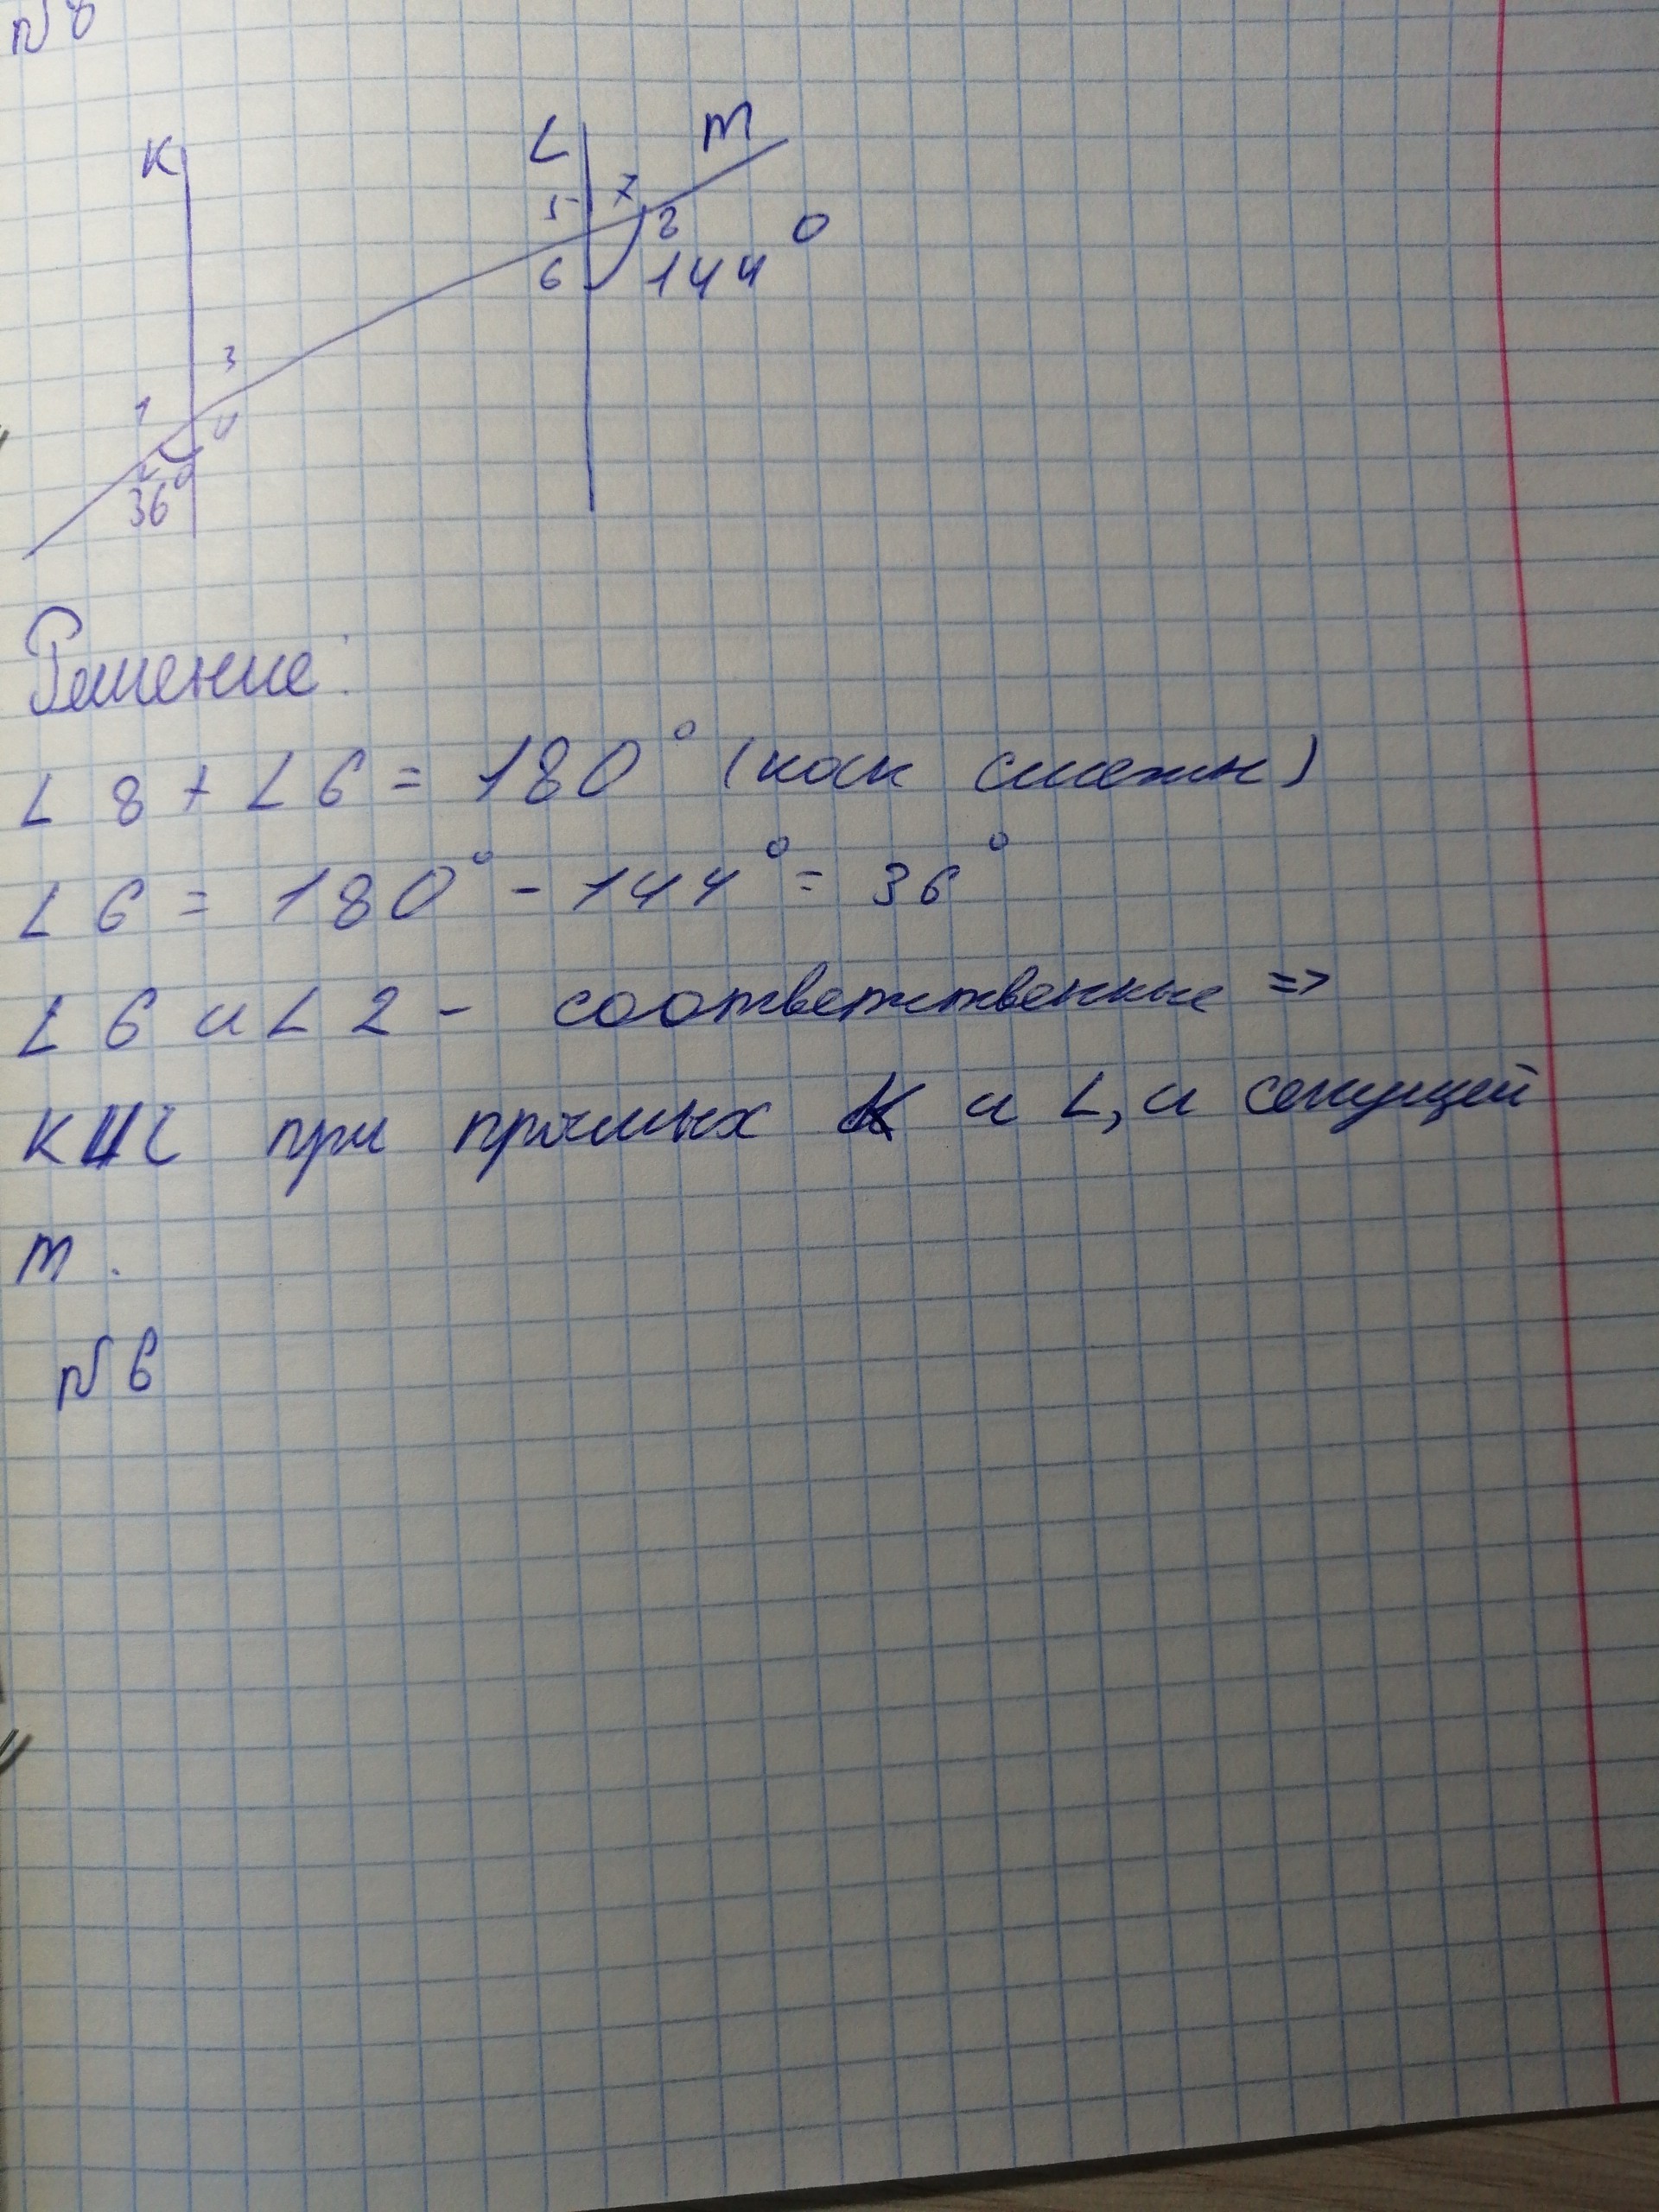 N 8
K
L
m
5 7
8
6 144 O
3
1
4
2
36°
Решение:
∠ 8 + ∠ 6 = 180° (как смежн)
∠ 6 = 180° - 144° = 36°
∠ 6 и ∠ 2 - соответственные =>
K || L при прямых K и L, и секущей
m.
N 6